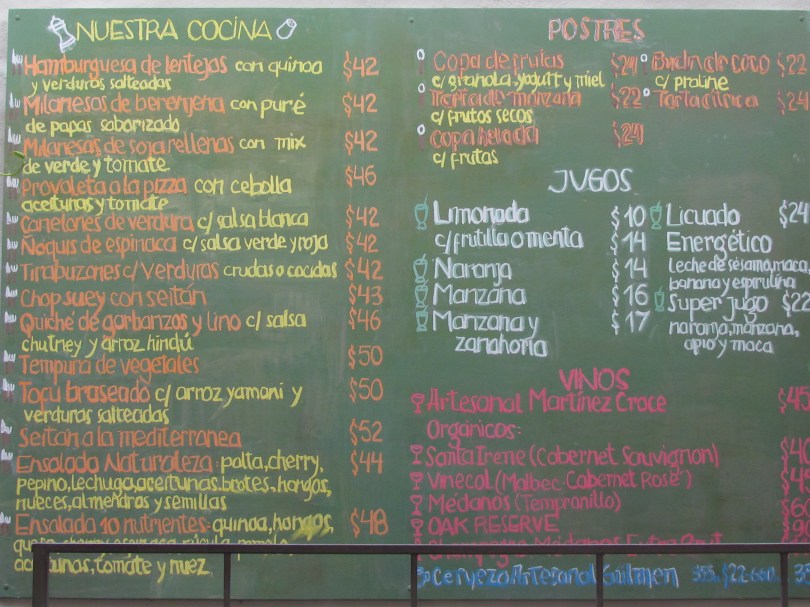 NUESTRA COCINA
Hamburguesa de lentejas con quinoa $42
y verduras salteadas
Milanesas de berenjena con puré $42
de papas saborizado
Milanesas de soja rellenas con mix $42
de verde y tomate
Provoleta a la pizza con cebolla $46
aceitunas y tomate
Canelones de verdura c/ salsa blanca $42
Ñoquis de espinaca c/ salsa verde y roja $42
Tirabuzones c/ verduras crudas o cocidas $42
Chop suey con seitán $43
Quiché de garbanzos y lino c/ salsa $46
chutney y arroz hindú
Tempura de vegetales $50
Tofu braseado c/ arroz yamani y $50
verduras salteadas
Seitan a la mediterranea $52
Ensalada Naturaleza: palta, cherry, $44
pepino, lechuga, aceitunas, brotes, hongos,
nueces, almendras y semillas
Ensalada 10 nutrientes: quinoa, hongos, $48
tomate y nuez
POSTRES
Copa de frutas $24
c/ granola, yogurt y miel
Tarta de manzana $22
c/ frutos secos
Copa helada $24
c/ frutas
Budin de coco $22
c/ praline
Tarta citrica $24
JUGOS
Limonada $10
c/ frutilla o menta $14
Naranja $14
Manzana $16
Manzana y $17
zanahoria
Licuado $24
Energético
leche de sésamo, maca,
banana y espirulina
Super jugo $22
naranja, manzana,
apio y maca
VINOS
Artesanal Martínez Croce $45
Organicos:
Santa Irene (Cabernet Sauvignon)
Vinecol (Malbec-Cabernet Rosé)
Médanos (Tempranillo)
OAK RESERVE
Cerveza Artesanal